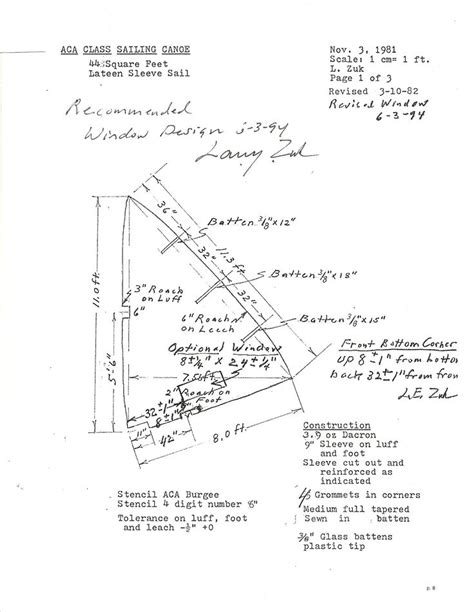 ACA CLASS SAILING CANOE
44 Square Feet
Lateen Sleeve Sail
Nov. 3, 1981
Scale: 1 cm= 1 ft.
L. Zuk
Page 1 of 3
Revised 3-10-82
Revised Window
6-3-94
Recommended
Window Design 6-3-94
Larry Zuk
36"
Batten 3/8"x12"
11.3 ft.
32"
Batten 3/8"x18"
11.0 ft.
3" Roach
on Luff
32"
6"
6" Roach
on Leech
Batten 3/8"x15"
Optional Window
8±1/4" x 24±1/4"
Front Bottom Corner
up 8±1" from botton
back 32±1" from fron
L.E. Zuk
5'-6"
7.50 ft.
2" Roach
on
Foot
32±1"
8±1"
11"
42"
8.0 ft.
Construction
3.9 oz Dacron
9" Sleeve on luff
and foot
Sleeve cut out and
reinforced as
indicated
Grommets in corners
Medium full tapered
Sewn in batten
3/8" Glass battens
plastic tip
Stencil ACA Burgee
Stencil 4 digit number 8"
Tolerance on luff, foot
and leach -½" +0
p. 8